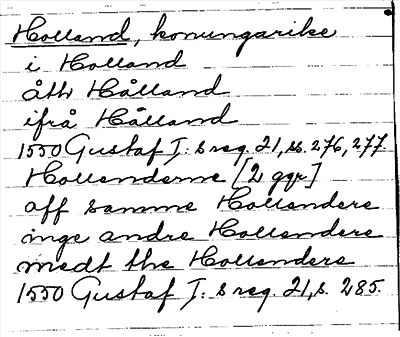 Holland, konungarike
i Holland
åth Hålland
ifrå Hålland
1550 Gustaf I:s reg. 21, ss. 276, 277.
Hollenderne [2 ggr]
aff samme Hollenders
inge andre Hollenders
medt the Hollenders
1550 Gustaf I:s reg. 21, s. 285.